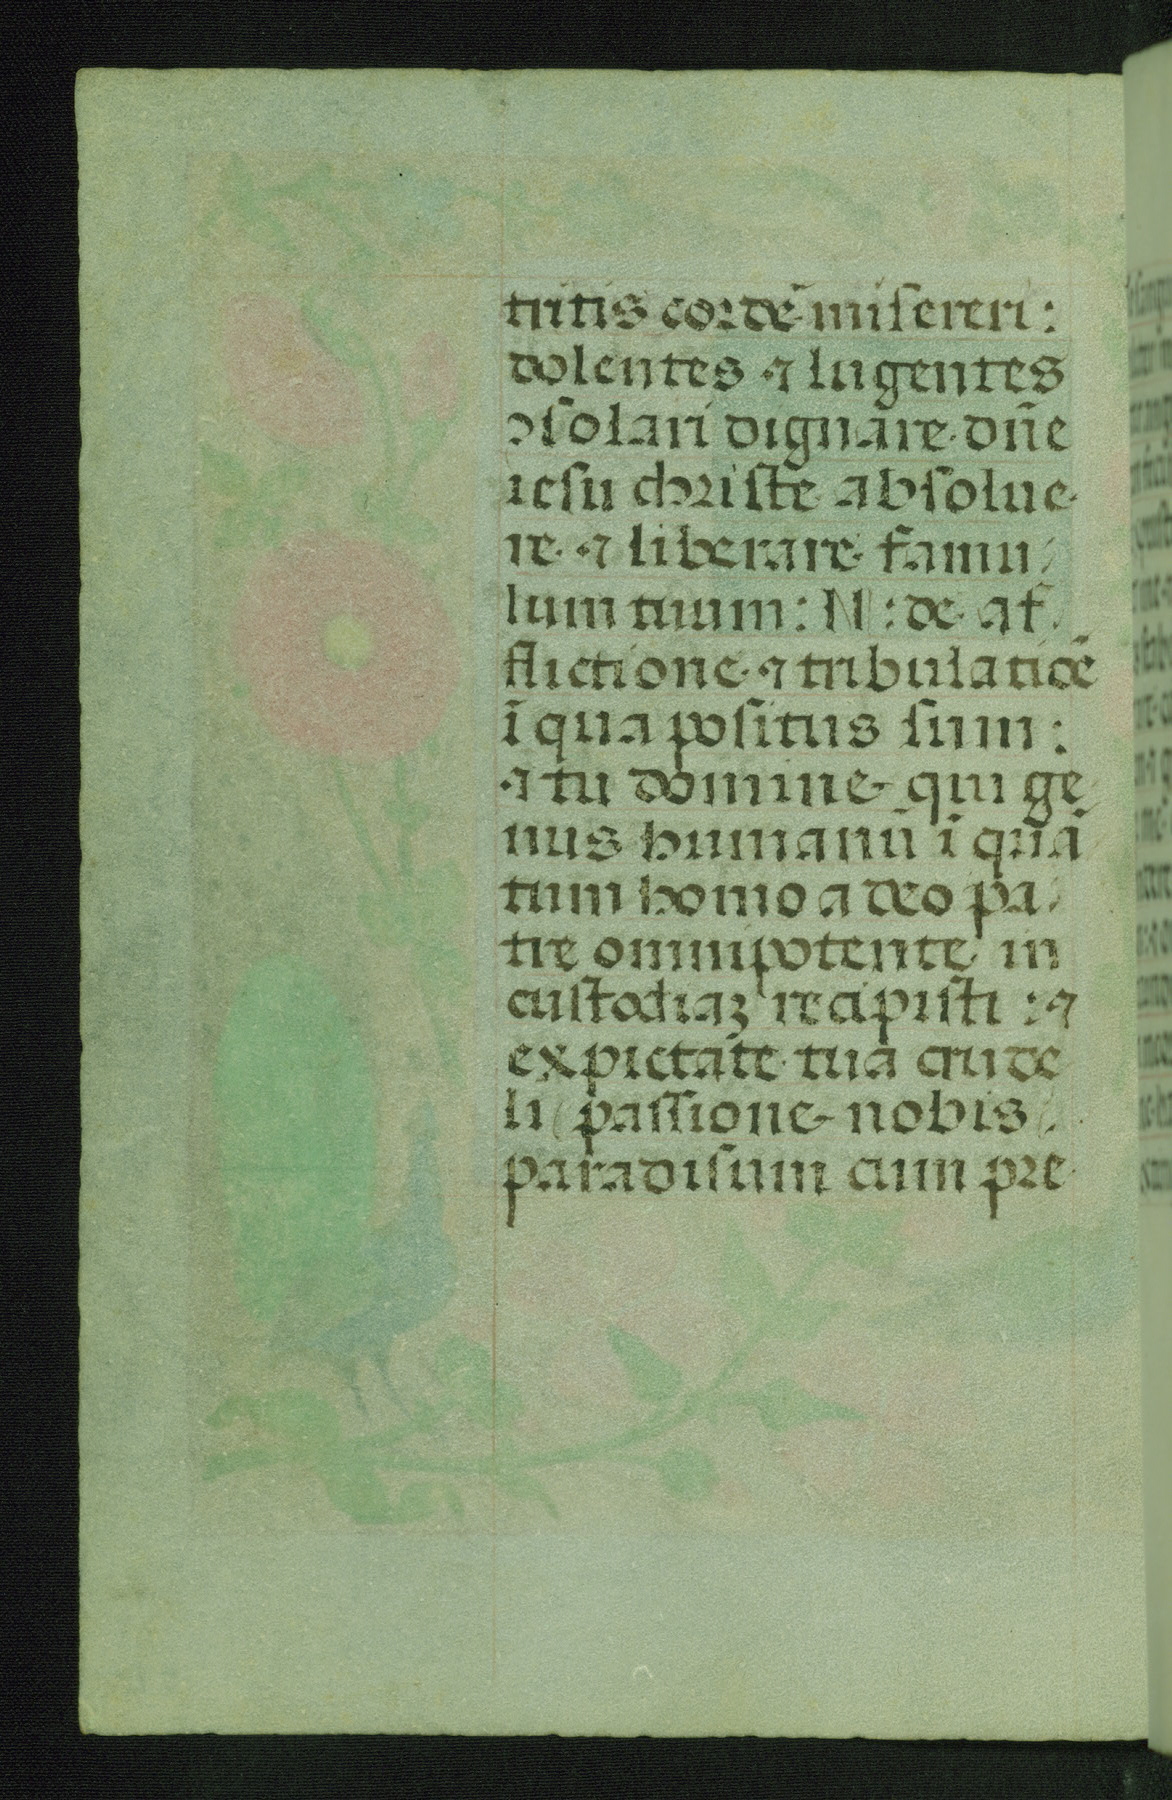 tritis cordē misereri:
dolentes ⁊ lugentes
ↄsolari dignare dn̄e
iesu christe absolue
re ⁊ liberare famu/
lum tuum: N: de af/
flictione ⁊ tribulatiōe
ī qua positus sum:
⁊ tu domine qui ge/
nus humanū ī quā
tum homo a deo pa/
tre omnipotente in
custodiaꝫ recipisti: ⁊
ex pietate tua crude
li passione nobis
paradisum cum pre